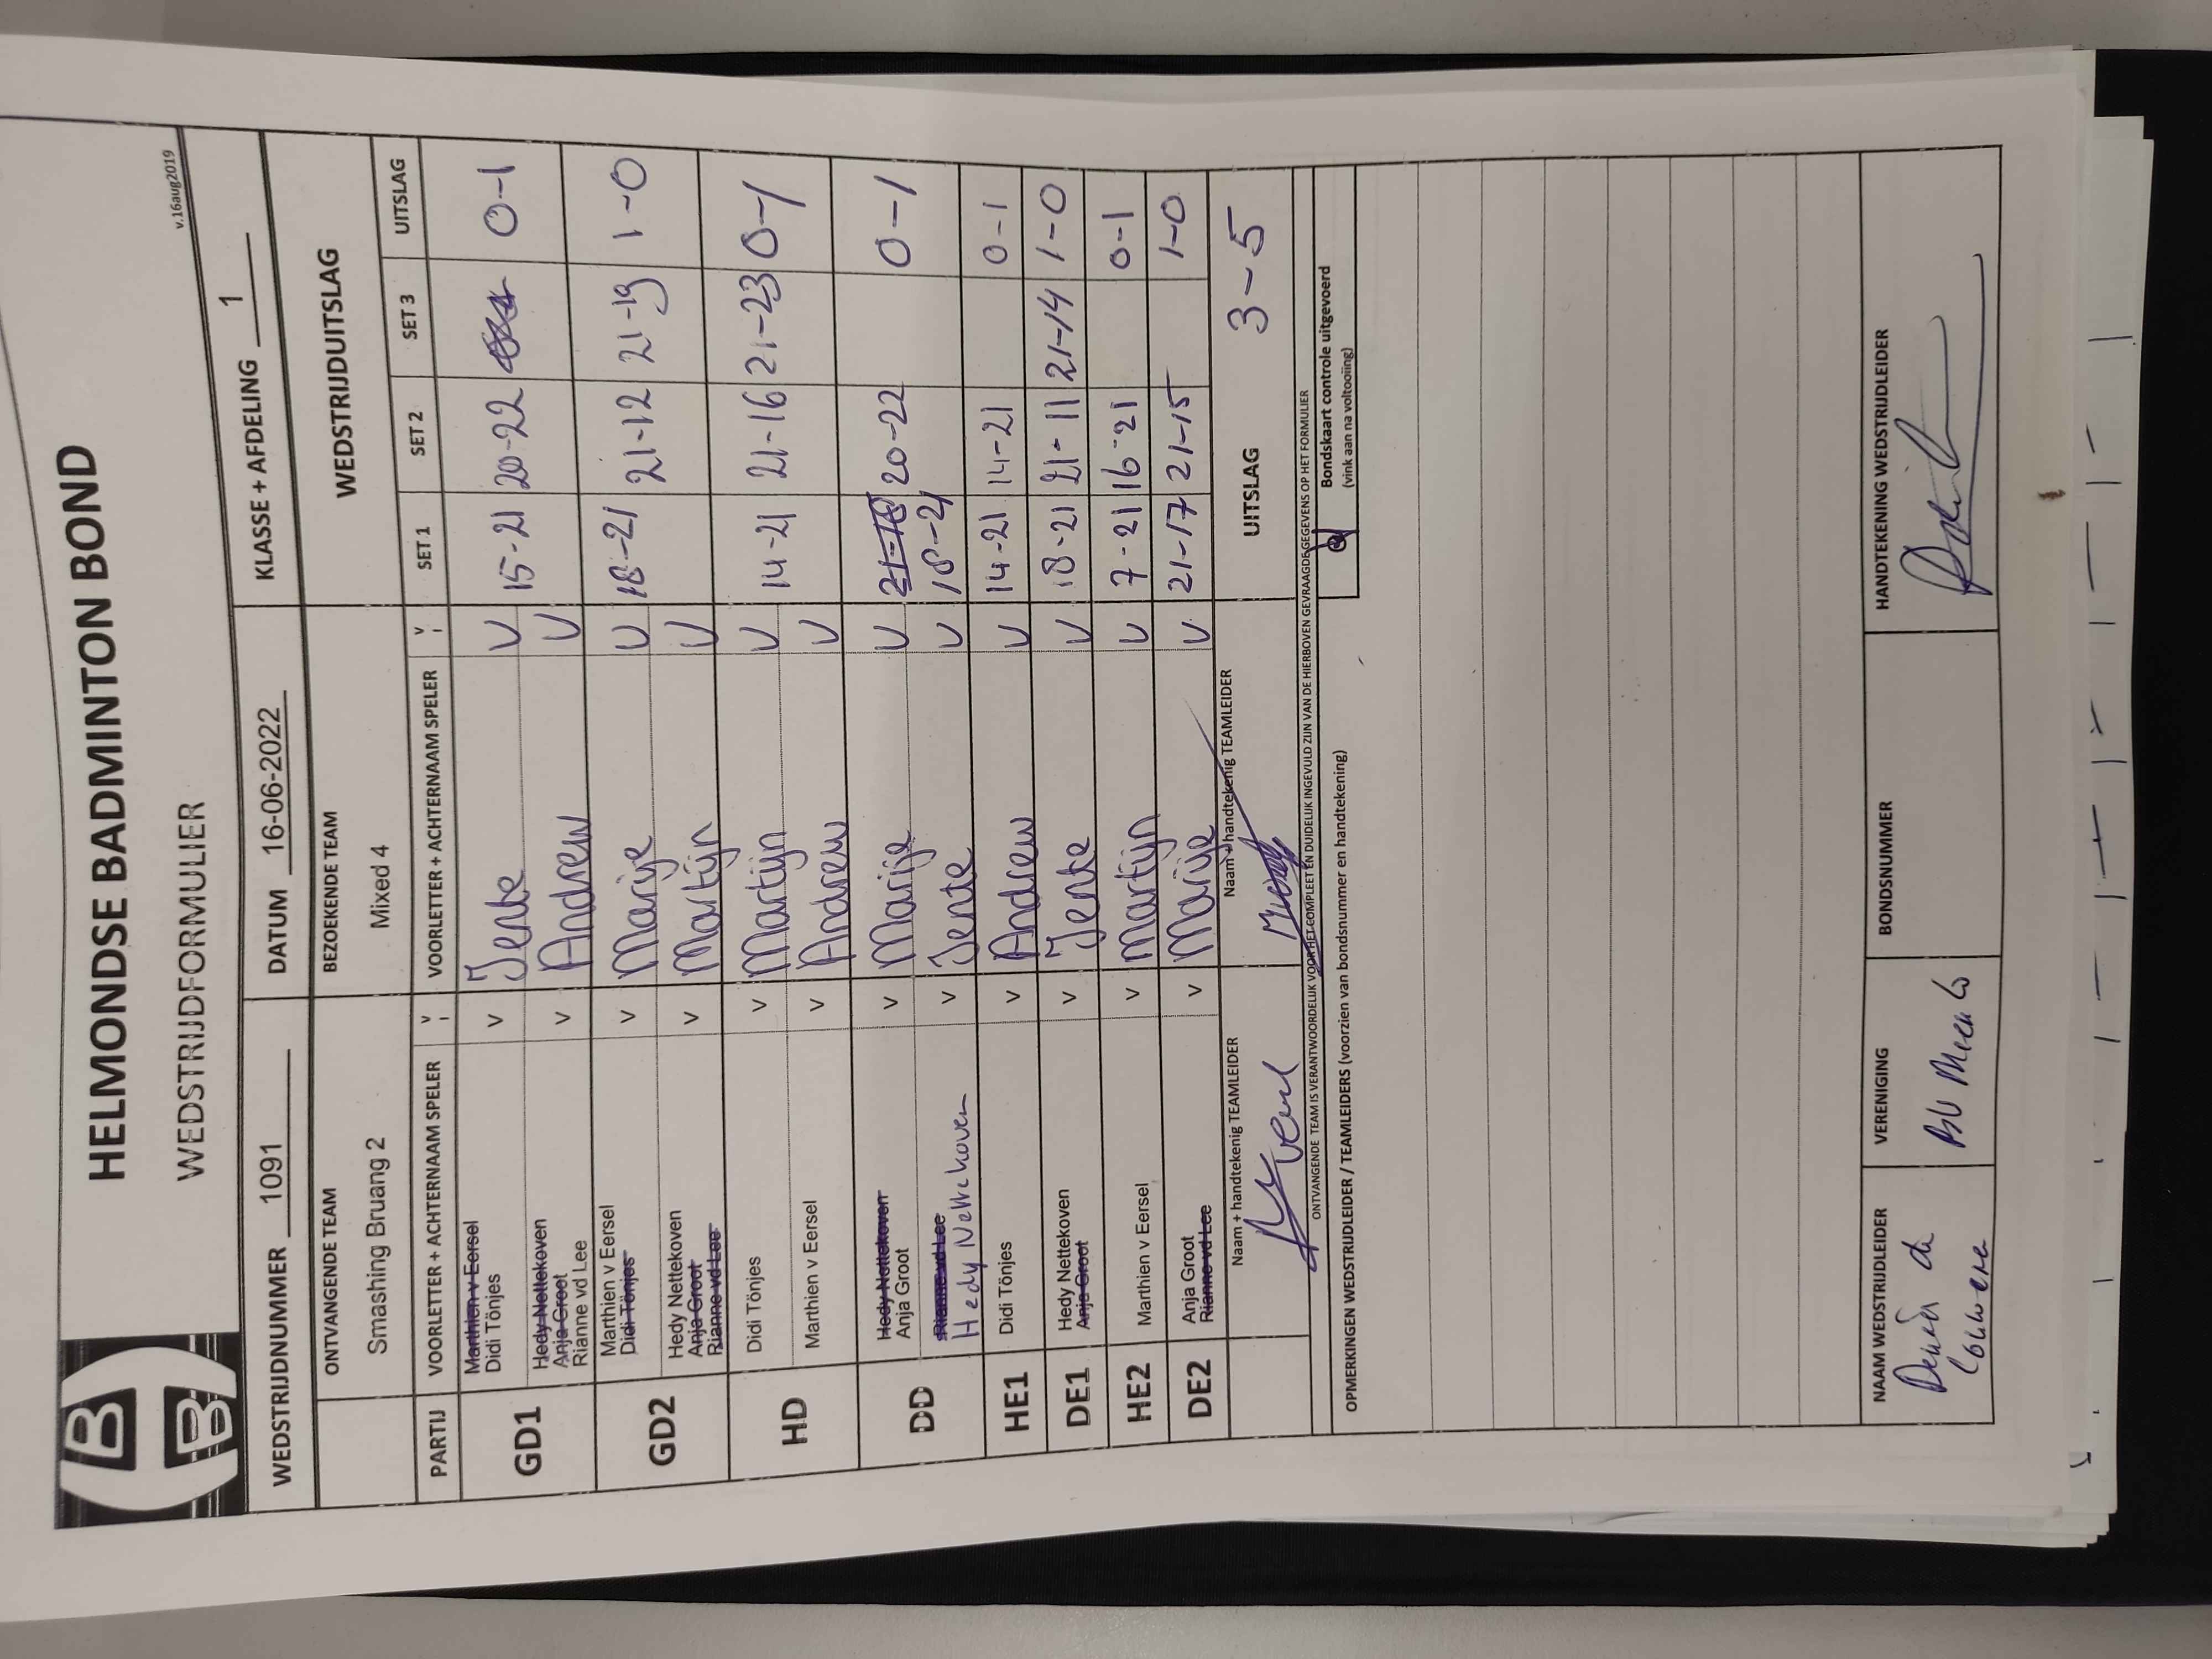 HELMONDSE BADMINTON BOND
WEDSTRIJDFORMULIER
v.16aug2019
WEDSTRIJDNUMMER 1091 DATUM 16-06-2022 KLASSE + AFDELING 1
ONTVANGENDE TEAM BEZOEKENDE TEAM WEDSTRIJDUITSLAG
Smashing Bruang 2 Mixed 4
PARTIJ VOORLETTER + ACHTERNAAM SPELER V VOORLETTER + ACHTERNAAM SPELER V SET 1 SET 2 SET 3 UITSLAG
GD1
Marthien v Eersel
Didi Tönjes V Jente V 15-21 20-22 0-1
Hedy Nettekoven
Anja Groot
Rianne vd Lee V Andrew V
GD2
Marthien v Eersel
Didi Tönjes V Marije V 18-21 21-12 21-19 1-0
Hedy Nettekoven
Anja Groot
Rianne vd Lee V Martijn V
HD
Didi Tönjes V Martijn V 14-21 21-16 21-23 0-1
Marthien v Eersel V Andrew V
DD
Hedy Nettekoven
Anja Groot V Marije V 21-16 20-22 0-1
Rianne vd Lee
Hedy Nettekoven V Jente V 18-21
HE1 Didi Tönjes V Andrew V 14-21 14-21 0-1
DE1 Hedy Nettekoven V Jente V 18-21 21-11 21-14 1-0
Anja Groot
HE2 Marthien v Eersel V Martijn V 7-21 16-21 0-1
DE2 Anja Groot V Marije V 21-17 21-15 1-0
Rianne vd Lee
Naam + handtekenig TEAMLEIDER Naam + handtekenig TEAMLEIDER UITSLAG 3-5
ONTVANGENDE TEAM IS VERANTWOORDELIJK VOOR HET COMPLEET EN DUIDELIJK INGEVULD ZIJN VAN DE HIERBOVEN GEVRAAGDE GEGEVENS OP HET FORMULIER
OPMERKINGEN WEDSTRIJDLEIDER / TEAMLEIDERS (voorzien van bondsnummer en handtekening)
Bondskaart controle uitgevoerd
(vink aan na voltooiing)
NAAM WEDSTRIJDLEIDER VERENIGING BONDSNUMMER HANDTEKENING WEDSTRIJDLEIDER